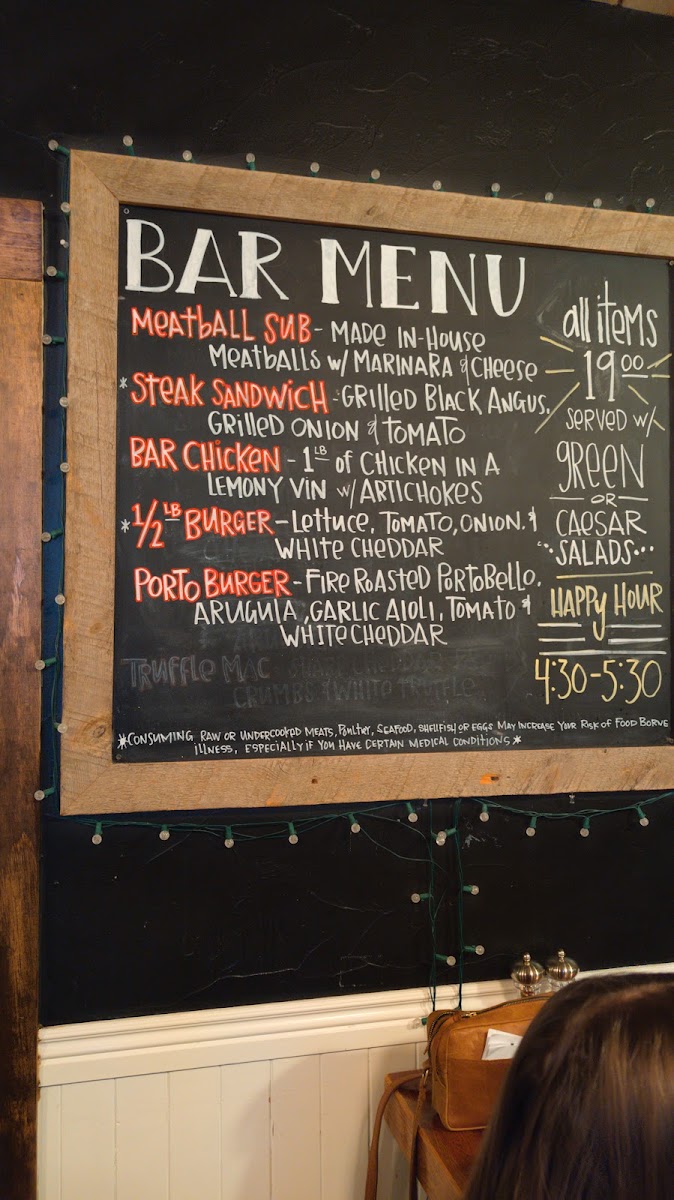 BAR MENU
MEATBALL SUB - MADE IN-HOUSE
MEATBALLS W/ MARINARA & CHEESE
*STEAK SANDWICH - GRILLED BLACK ANGUS,
GRILLED ONION & TOMATO
BAR CHICKEN - 1 LB OF CHICKEN IN A
LEMONY VIN W/ ARTICHOKES
*1/2 LB BURGER - LETTUCE, TOMATO, ONION, &
WHITE CHEDDAR
PORTO BURGER - FIRE ROASTED PORTOBELLO,
ARUGULA, GARLIC AIOLI, TOMATO &
WHITE CHEDDAR
TRUFFLE MAC
CRUMBS & WHITE TRUFFLE
all items
19 00
SERVED W/
GREEN
OR
CAESAR
SALADS...
HAPPY HOUR
4:30-5:30
*CONSUMING RAW OR UNDERCOOKED MEATS, POULTRY, SEAFOOD, SHELLFISH OR EGGS MAY INCREASE YOUR RISK OF FOOD BORNE
ILLNESS, ESPECIALLY IF YOU HAVE CERTAIN MEDICAL CONDITIONS*